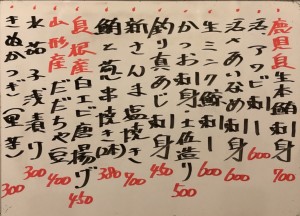 鹿児島 生本鮪刺し 700
活アワビ刺し 600
活〆あいなめ刺し 600
生ミンク鯨刺し 600
かつお刺身土佐造り 500
釣り真あじ刺身 450
新さんま塩焼き 700
鮪と葱串焼き 380
島根産 白エビ唐揚げ 450
山形産 だだちゃ豆 400
水茄子浅漬り 300
きぬかつぎ(里芋) 300